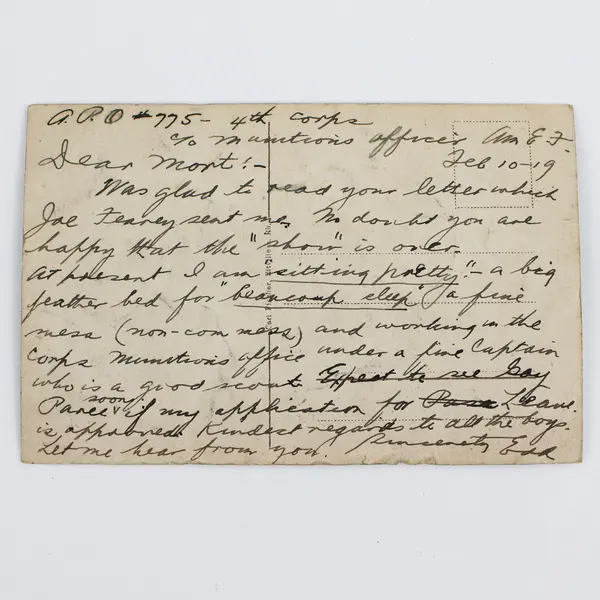 A.P.O #775- 4th Corps
c/o Munitions officer Am E. F.
Dear Mort!- Feb 10-19
Was glad to read your letter which
Joe Fearey sent me. No doubt you are
happy that the "show" is over.
At present I am sitting pretty"- a big
feather bed for "beaucoup sleep", a fine
mess (non-com mess) and working in the
Corps Munitions office under a fine Captain
who is a good scout. Expect to see Gay
Paree soon if my application for Leave
is approved. Kindest regards to all the boys.
Let me hear from you. Sincerely Edd